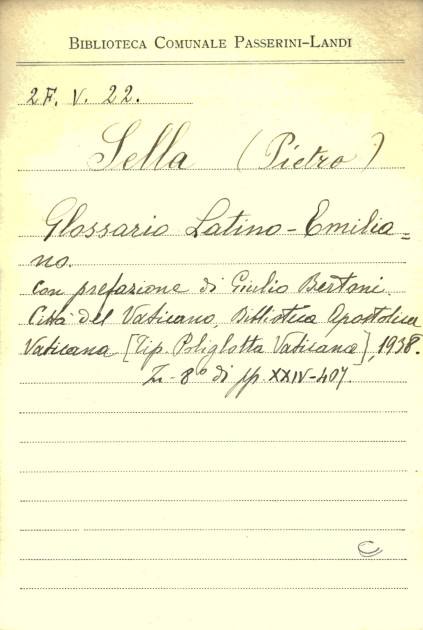 BIBLIOTECA COMUNALE PASSERINI-LANDI
2F. V. 22.
Sella (Pietro)
Glossario Latino-Emilia=
no.
con prefazione di Giulio Bertoni.
Città del Vaticano, Biblioteca Apostolica
Vaticana [Tip. Poliglotta Vaticana], 1938.
In-8° di pp. XXIV-407.